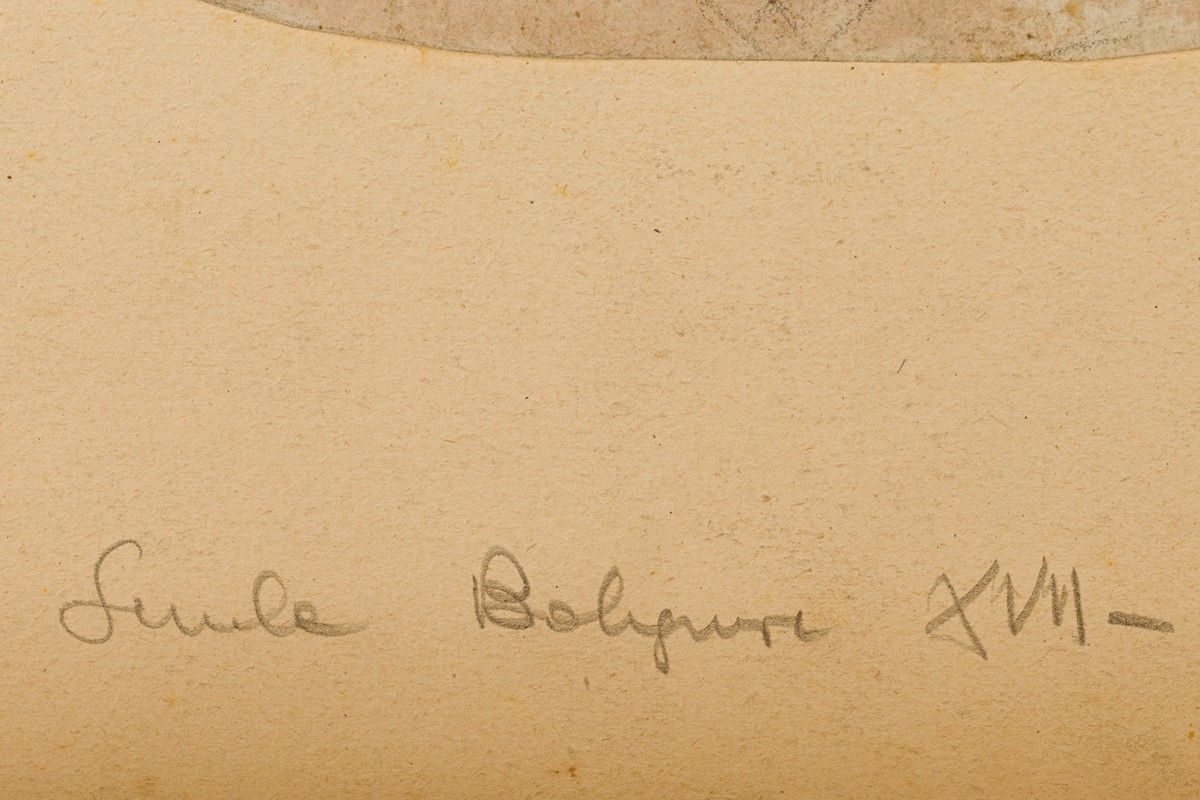 Scuola Bolognese XVII -